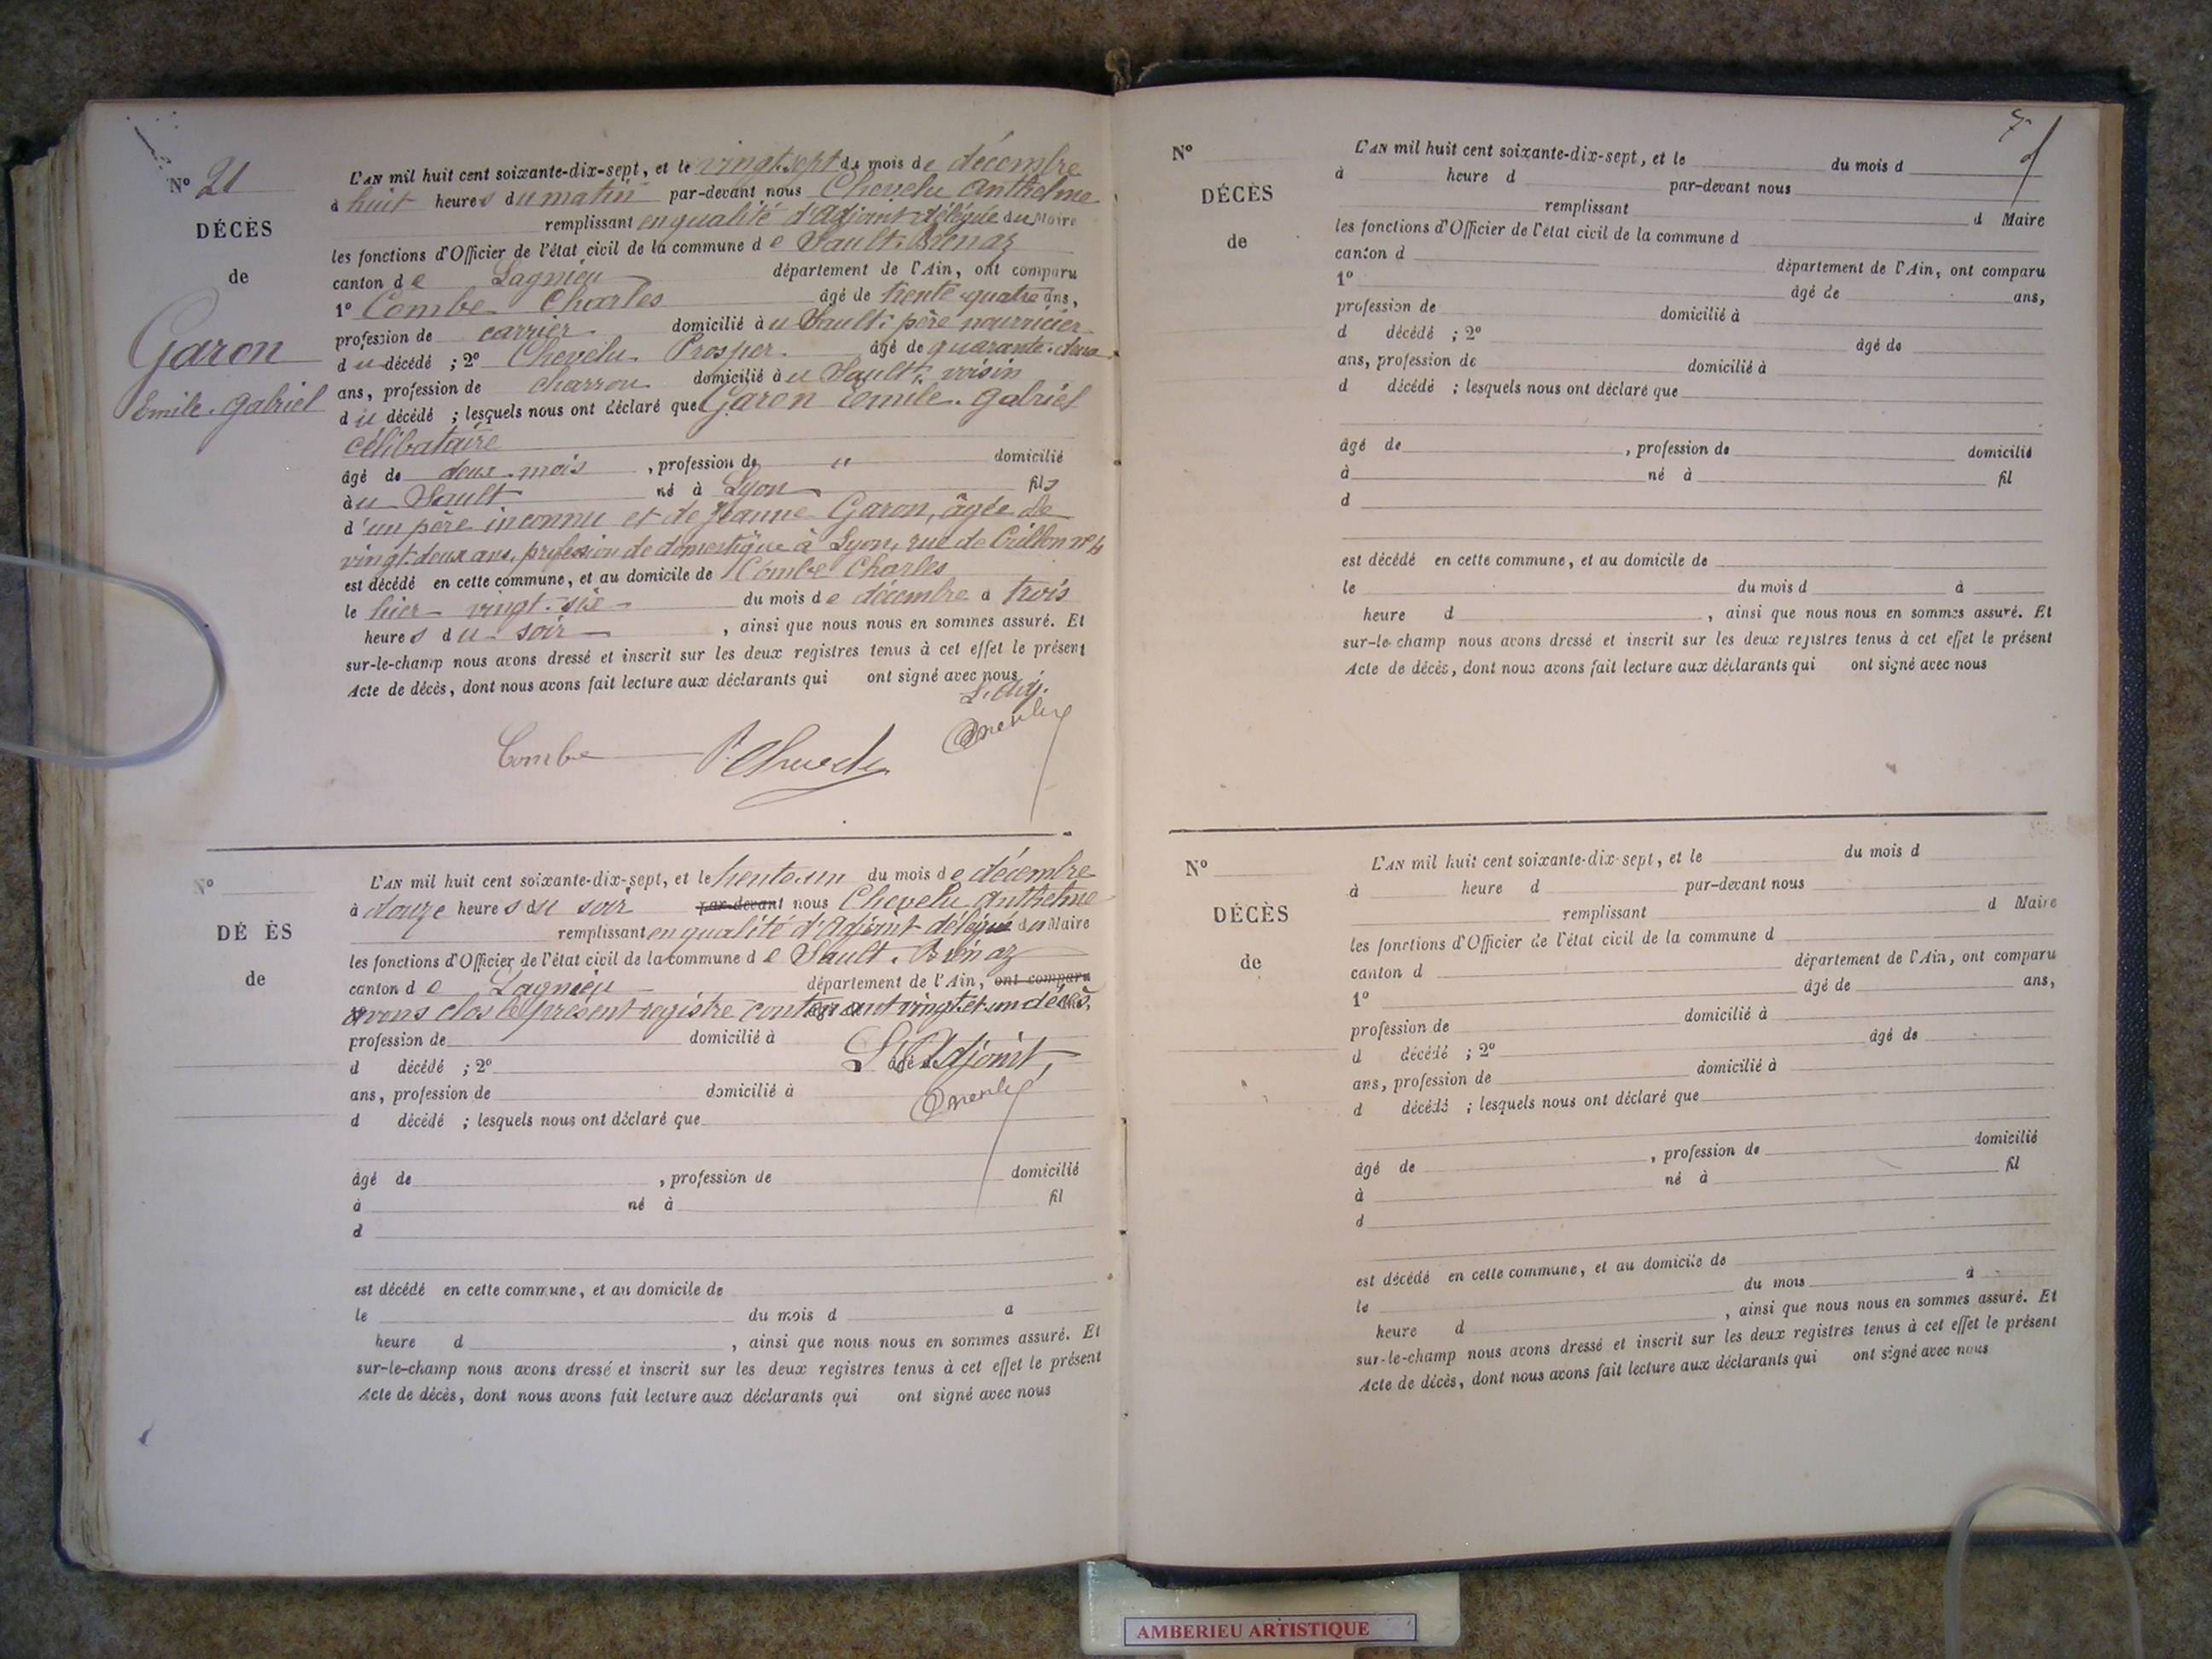 N° 21
DÉCÈS
de
Garon
Emile Gabriel
L'AN mil huit cent soixante-dix-sept, et le vingt-sept du mois de décembre
à huit heures du matin par-devant nous Chevelu Anthelme
remplissant en qualité d'Adjoint délégué du Maire
les fonctions d'Officier de l'état civil de la commune de Sault-Brénaz
canton de Lagnieu département de l'Ain, ont comparu
1° Combe Charles âgé de trente-quatre ans,
profession de carrier domicilié à u Sault: père nourricier
du décédé ; 2° Chevelu Prosper âgé de quarante-deux
ans, profession de charron domicilié à u Sault: voisin
du décédé ; lesquels nous ont déclaré que Garon Emile Gabriel
célibataire
âgé de deux mois , profession de " domicilié
àu Sault né à Lyon fils
d'un père inconnu et de Jeanne Garon, âgée de
vingt-deux ans, profession de domestique à Lyon, rue de Crillon n° 4
est décédé en cette commune, et au domicile de Combe Charles
le hier vingt-six du mois de décembre à trois
heures du soir , ainsi que nous nous en sommes assuré. Et
sur-le-champ nous avons dressé et inscrit sur les deux registres tenus à cet effet le présent
Acte de décès, dont nous avons fait lecture aux déclarants qui ont signé avec nous
L'adj.
Combe P. Chevelu
N°
DÉ ÈS
de
L'AN mil huit cent soixante-dix-sept, et le trente-un du mois de décembre
à douze heures du soir par-devant nous Chevelu Anthelme
remplissant en qualité d'Adjoint délégué du Maire
les fonctions d'Officier de l'état civil de la commune de Sault-Brénaz
canton de Lagnieu département de l'Ain, ont comparu
avons clos le présent registre contenant vingt et un décès.
profession de domicilié à
L'Adjoint,
d décédé ; 2° âgé de
ans, profession de domicilié à
d décédé ; lesquels nous ont déclaré que
âgé de , profession de domicilié
à né à fil
d
est décédé en cette commune, et au domicile de
le du mois d à
heure d , ainsi que nous nous en sommes assuré. Et
sur-le-champ nous avons dressé et inscrit sur les deux registres tenus à cet effet le présent
Acte de décès, dont nous avons fait lecture aux déclarants qui ont signé avec nous
N°
DÉCÈS
de
L'AN mil huit cent soixante-dix-sept, et le du mois d
à heure d par-devant nous
remplissant d Maire
les fonctions d'Officier de l'état civil de la commune d
canton d département de l'Ain, ont comparu
1° âgé de ans,
profession de domicilié à
d décédé ; 2° âgé de
ans, profession de domicilié à
d décédé ; lesquels nous ont déclaré que
âgé de , profession de domicilié
à né à fil
d
est décédé en cette commune, et au domicile de
le du mois d à
heure d , ainsi que nous nous en sommes assuré. Et
sur-le-champ nous avons dressé et inscrit sur les deux registres tenus à cet effet le présent
Acte de décès, dont nous avons fait lecture aux déclarants qui ont signé avec nous
N°
DÉCÈS
de
L'AN mil huit cent soixante-dix-sept, et le du mois d
à heure d par-devant nous
remplissant d Maire
les fonctions d'Officier de l'état civil de la commune d
canton d département de l'Ain, ont comparu
1° âgé de ans,
profession de domicilié à
d décédé ; 2° âgé de
ans, profession de domicilié à
d décédé ; lesquels nous ont déclaré que
âgé de , profession de domicilié
à né à fil
d
est décédé en cette commune, et au domicile de
le du mois à
heure d , ainsi que nous nous en sommes assuré. Et
sur-le-champ nous avons dressé et inscrit sur les deux registres tenus à cet effet le présent
Acte de décès, dont nous avons fait lecture aux déclarants qui ont signé avec nous
AMBERIEU ARTISTIQUE